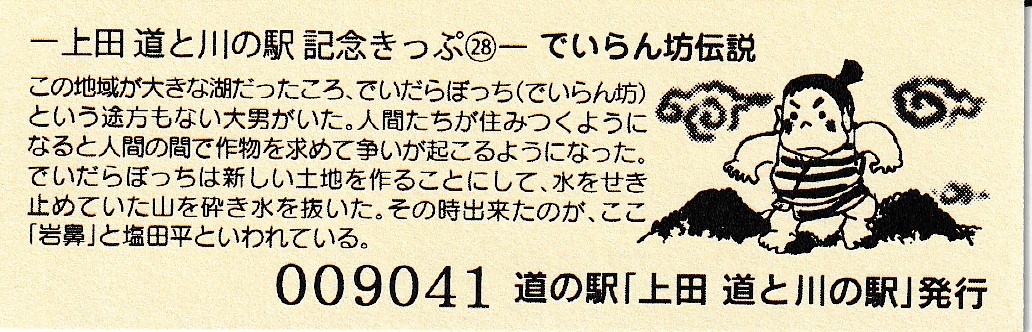 －上田 道と川の駅 記念きっぷ㉘－ でいらん坊伝説
この地域が大きな湖だったころ、でいだらぼっち(でいらん坊)
という途方もない大男がいた。人間たちが住みつくように
なると人間の間で作物を求めて争いが起こるようになった。
でいだらぼっちは新しい土地を作ることにして、水をせき
止めていた山を砕き水を抜いた。その時出来たのが、ここ
「岩鼻」と塩田平といわれている。
009041 道の駅「上田 道と川の駅」発行